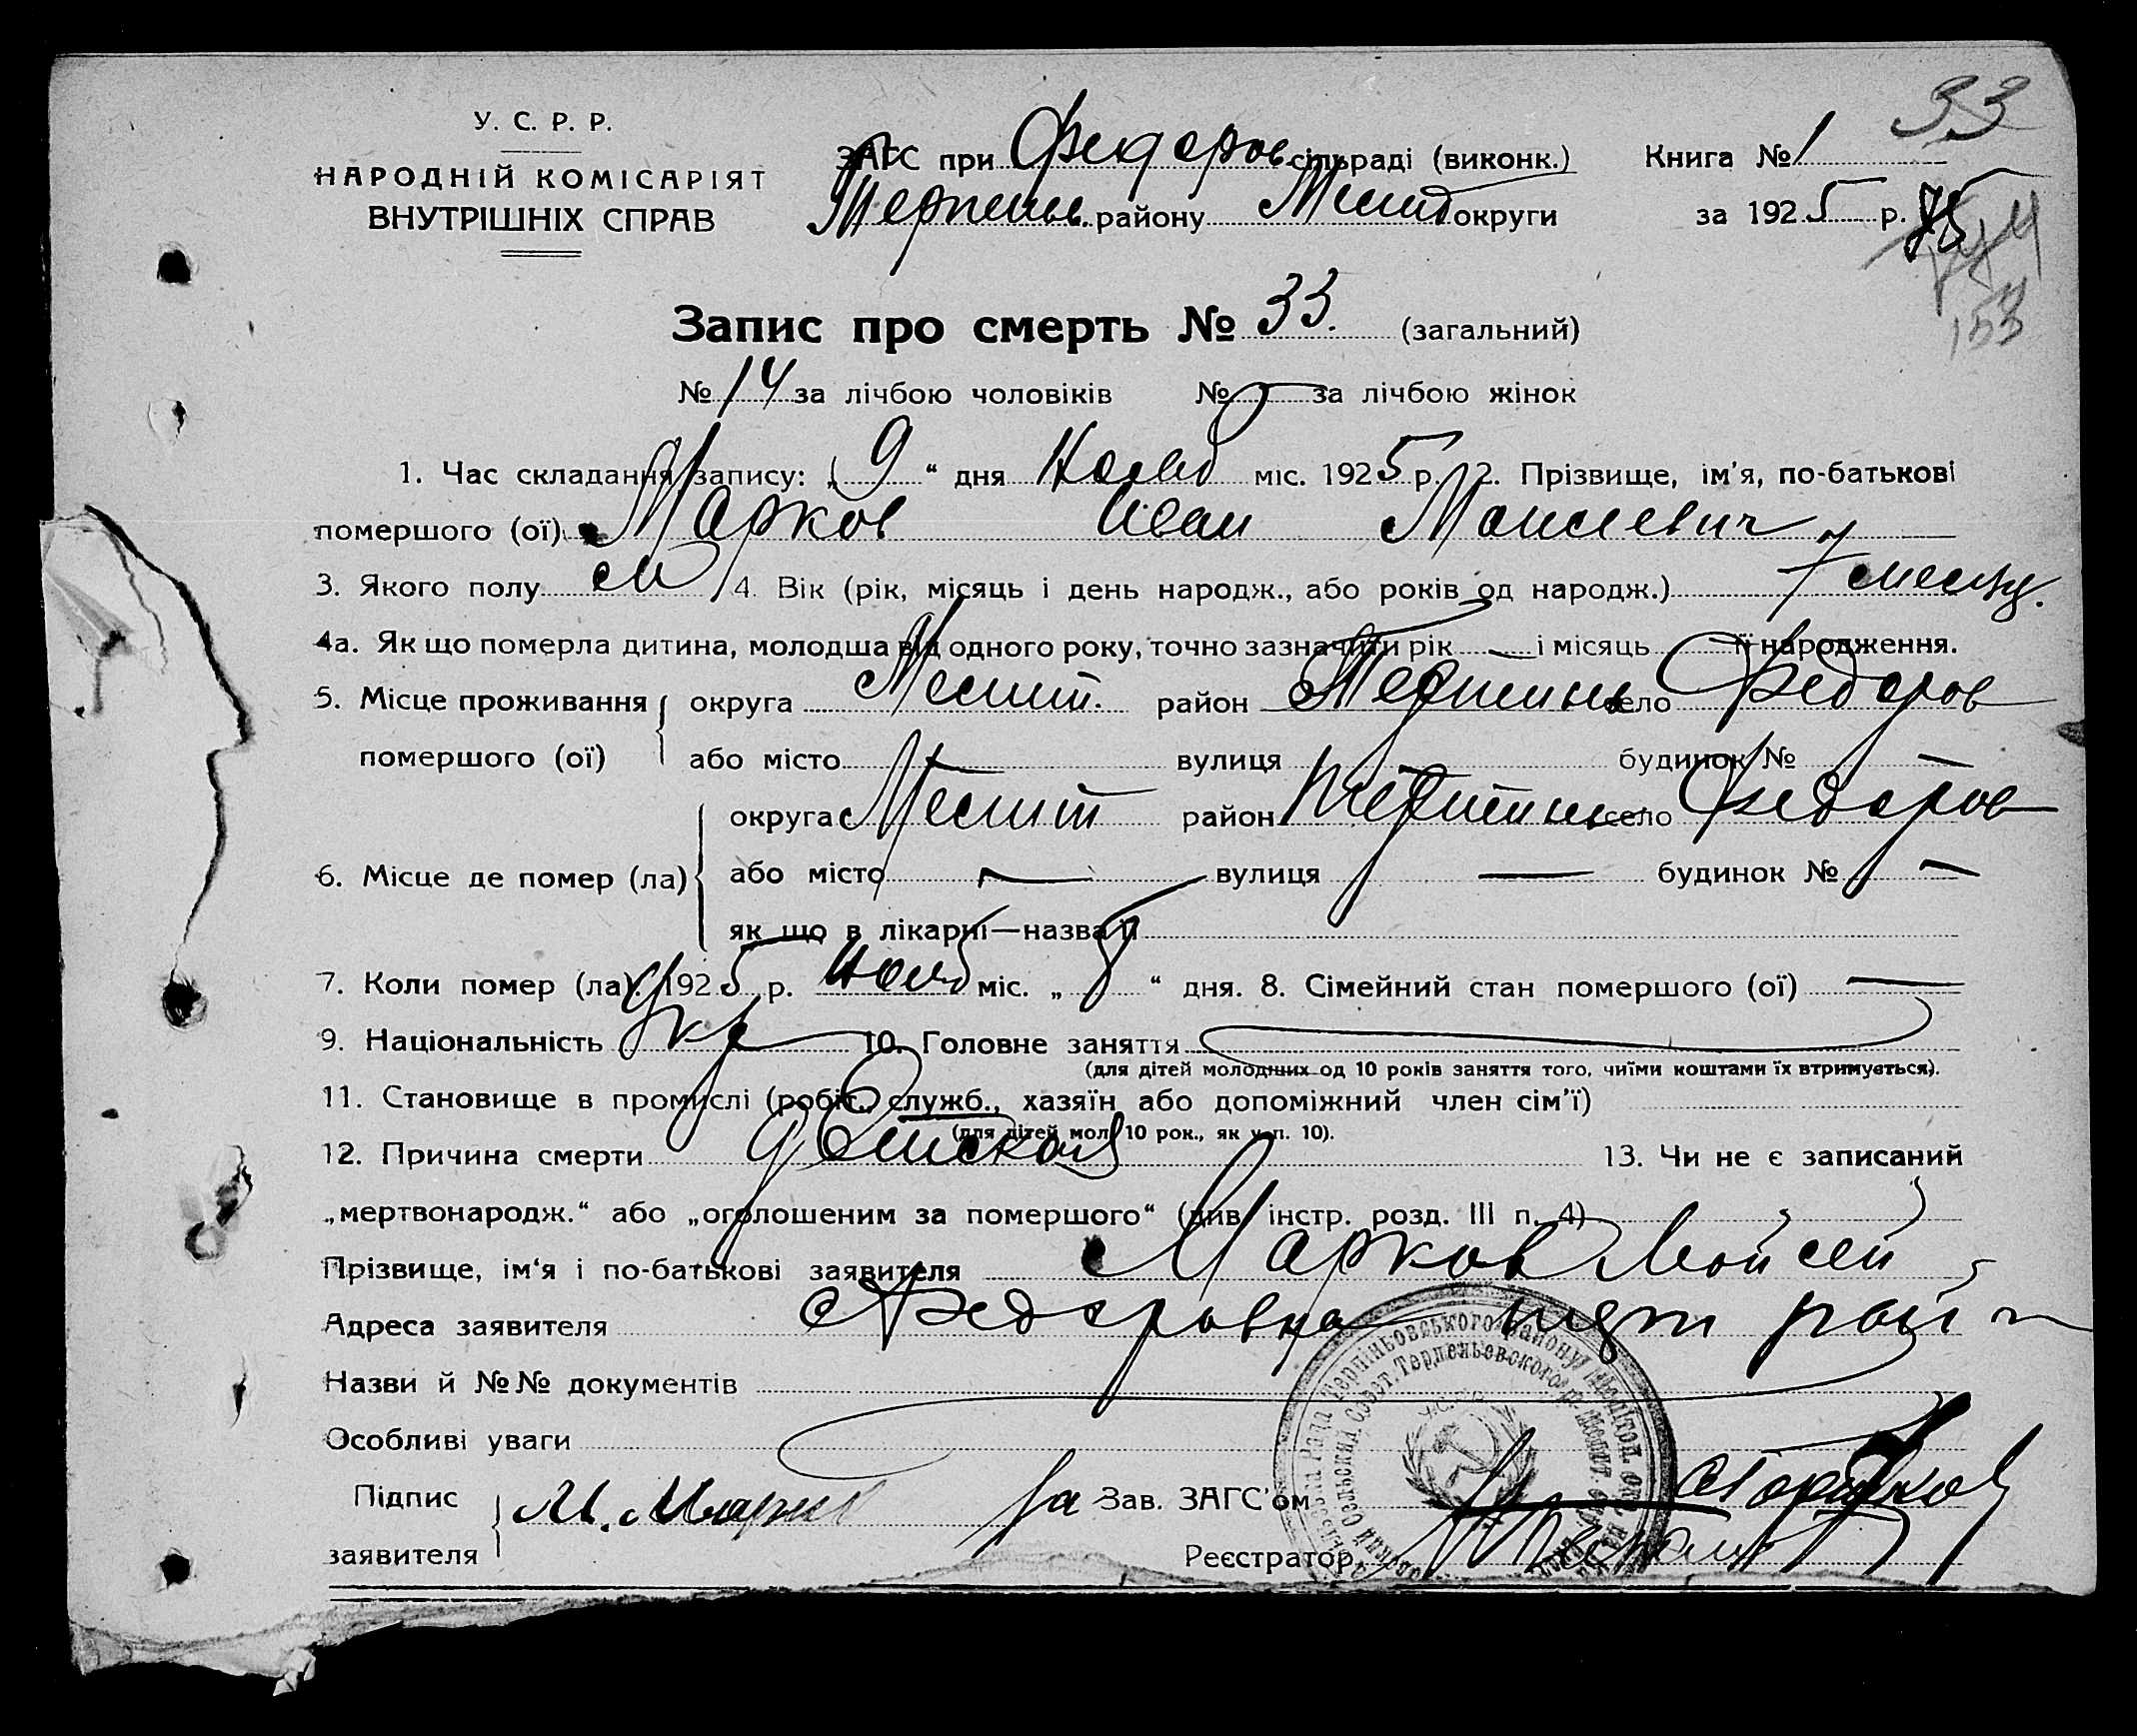 33
У. С. Р. Р.
НАРОДНІЙ КОМІСАРІЯТ
ВНУТРІШНІХ СПРАВ
ЗАГС при Федоров сільраді (виконк.) Книга № 1
Терпеньев. району Мелит округи за 1925 р.
153
Запис про смерть № 33. (загальний)
№ 14 за лічбою чоловіків № — за лічбою жінок
1. Час складання запису: „ 9 “ дня Нояб міс. 1925 р. 2. Прізвище, ім'я, по-батькові
помершого (ої) Марков Иван Моисеевич
3. Якого полу м 4. Вік (рік, місяць і день народж., або років од народж.) 7 месяц.
4а. Як що померла дитина, молодша від одного року, точно зазначити рік — і місяць — її народження.
5. Місце проживання округа Мелит. район Терпеньев село Федоров
помершого (ої) або місто — вулиця — будинок № —
округа Мелит район Терпеньев село Федоров
6. Місце де помер (ла) або місто — вулиця — будинок № —
як що в лікарні—назва її
7. Коли помер (ла) 1925 р. Нояб міс. „ 8 “ дня. 8. Сімейний стан помершого (ої) —
9. Національність Укр 10. Головне заняття
(для дітей молодших од 10 років заняття того, чиїми коштами їх втримується).
11. Становище в промислі (робіт., служб., хазяїн або допоміжний член сім'ї)
(для дітей мол. 10 рок., як у п. 10).
12. Причина смерти 13. Чи не є записаний
„мертвонародж.“ або „оголошеним за помершого“ (див. інстр. розд. III п. 4)
Прізвище, ім'я і по-батькові заявителя Марков Мойсей
Адреса заявителя Федоровка рай
Назви й №№ документів
Особливі уваги
Підпис М. Марков За Зав. ЗАГС'ом
заявителя Реєстратор